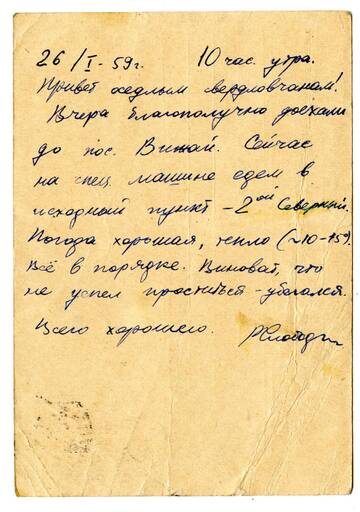 26/I-59г. 10 час. утра.
Привет оседлым свердловчанам!
Вчера благополучно доехали
до пос. Вижай. Сейчас
на спец. машине едем в
исходный пункт - 2ой Северный.
Погода хорошая, тепло (~10-15°).
Всё в порядке. Виноват, что
не успел проститься - убегался.
Всего хорошего.